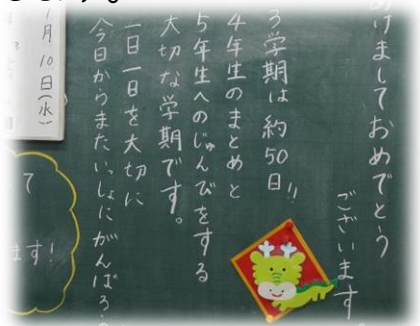 けましておめでとう
ございます
3学期は約50日!!
4年生のまとめと
5年生へのじゅんびをする
大切な学期です。
一日一日を大切に
今日からまたいっしょにがんばろう
月10日(水)
て
ます!